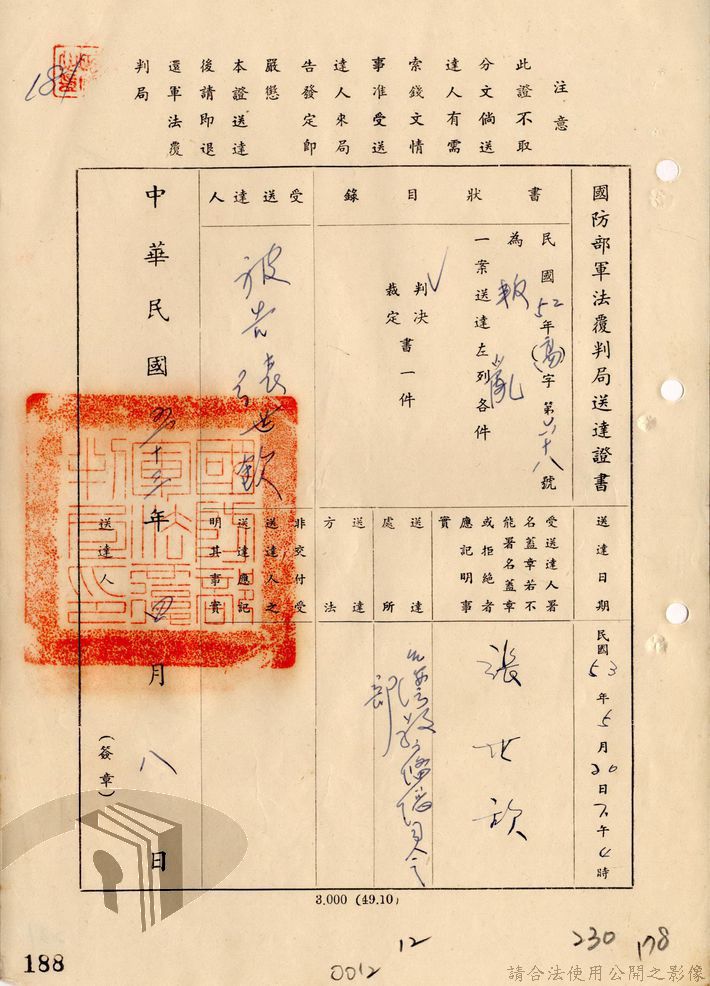 注意
此證不取
分文倘送
達人有需
索錢文情
事准受送
達人來局
告發定即
嚴懲
本證送達
後請即退
還軍法覆
判局
國防部軍法覆判局送達證書
送達日期
民國53年5月20日下午4時
書狀目錄
民國52年(高)字第六十八號
為叛亂
一案送達左列各件
判決
裁定
書一件
受送達人署
名蓋章若不
能署名蓋章
或拒絕者
應記明事
實
張世欽
送達處所
送達方法
受送達人
被告張世欽
非交付受
送達人之
送達應記
明其事實
中華民國五十三年四月八日
送達人
(簽章)
3.000 (49.10)
188
0012
12
230
178
請合法使用公開之影像